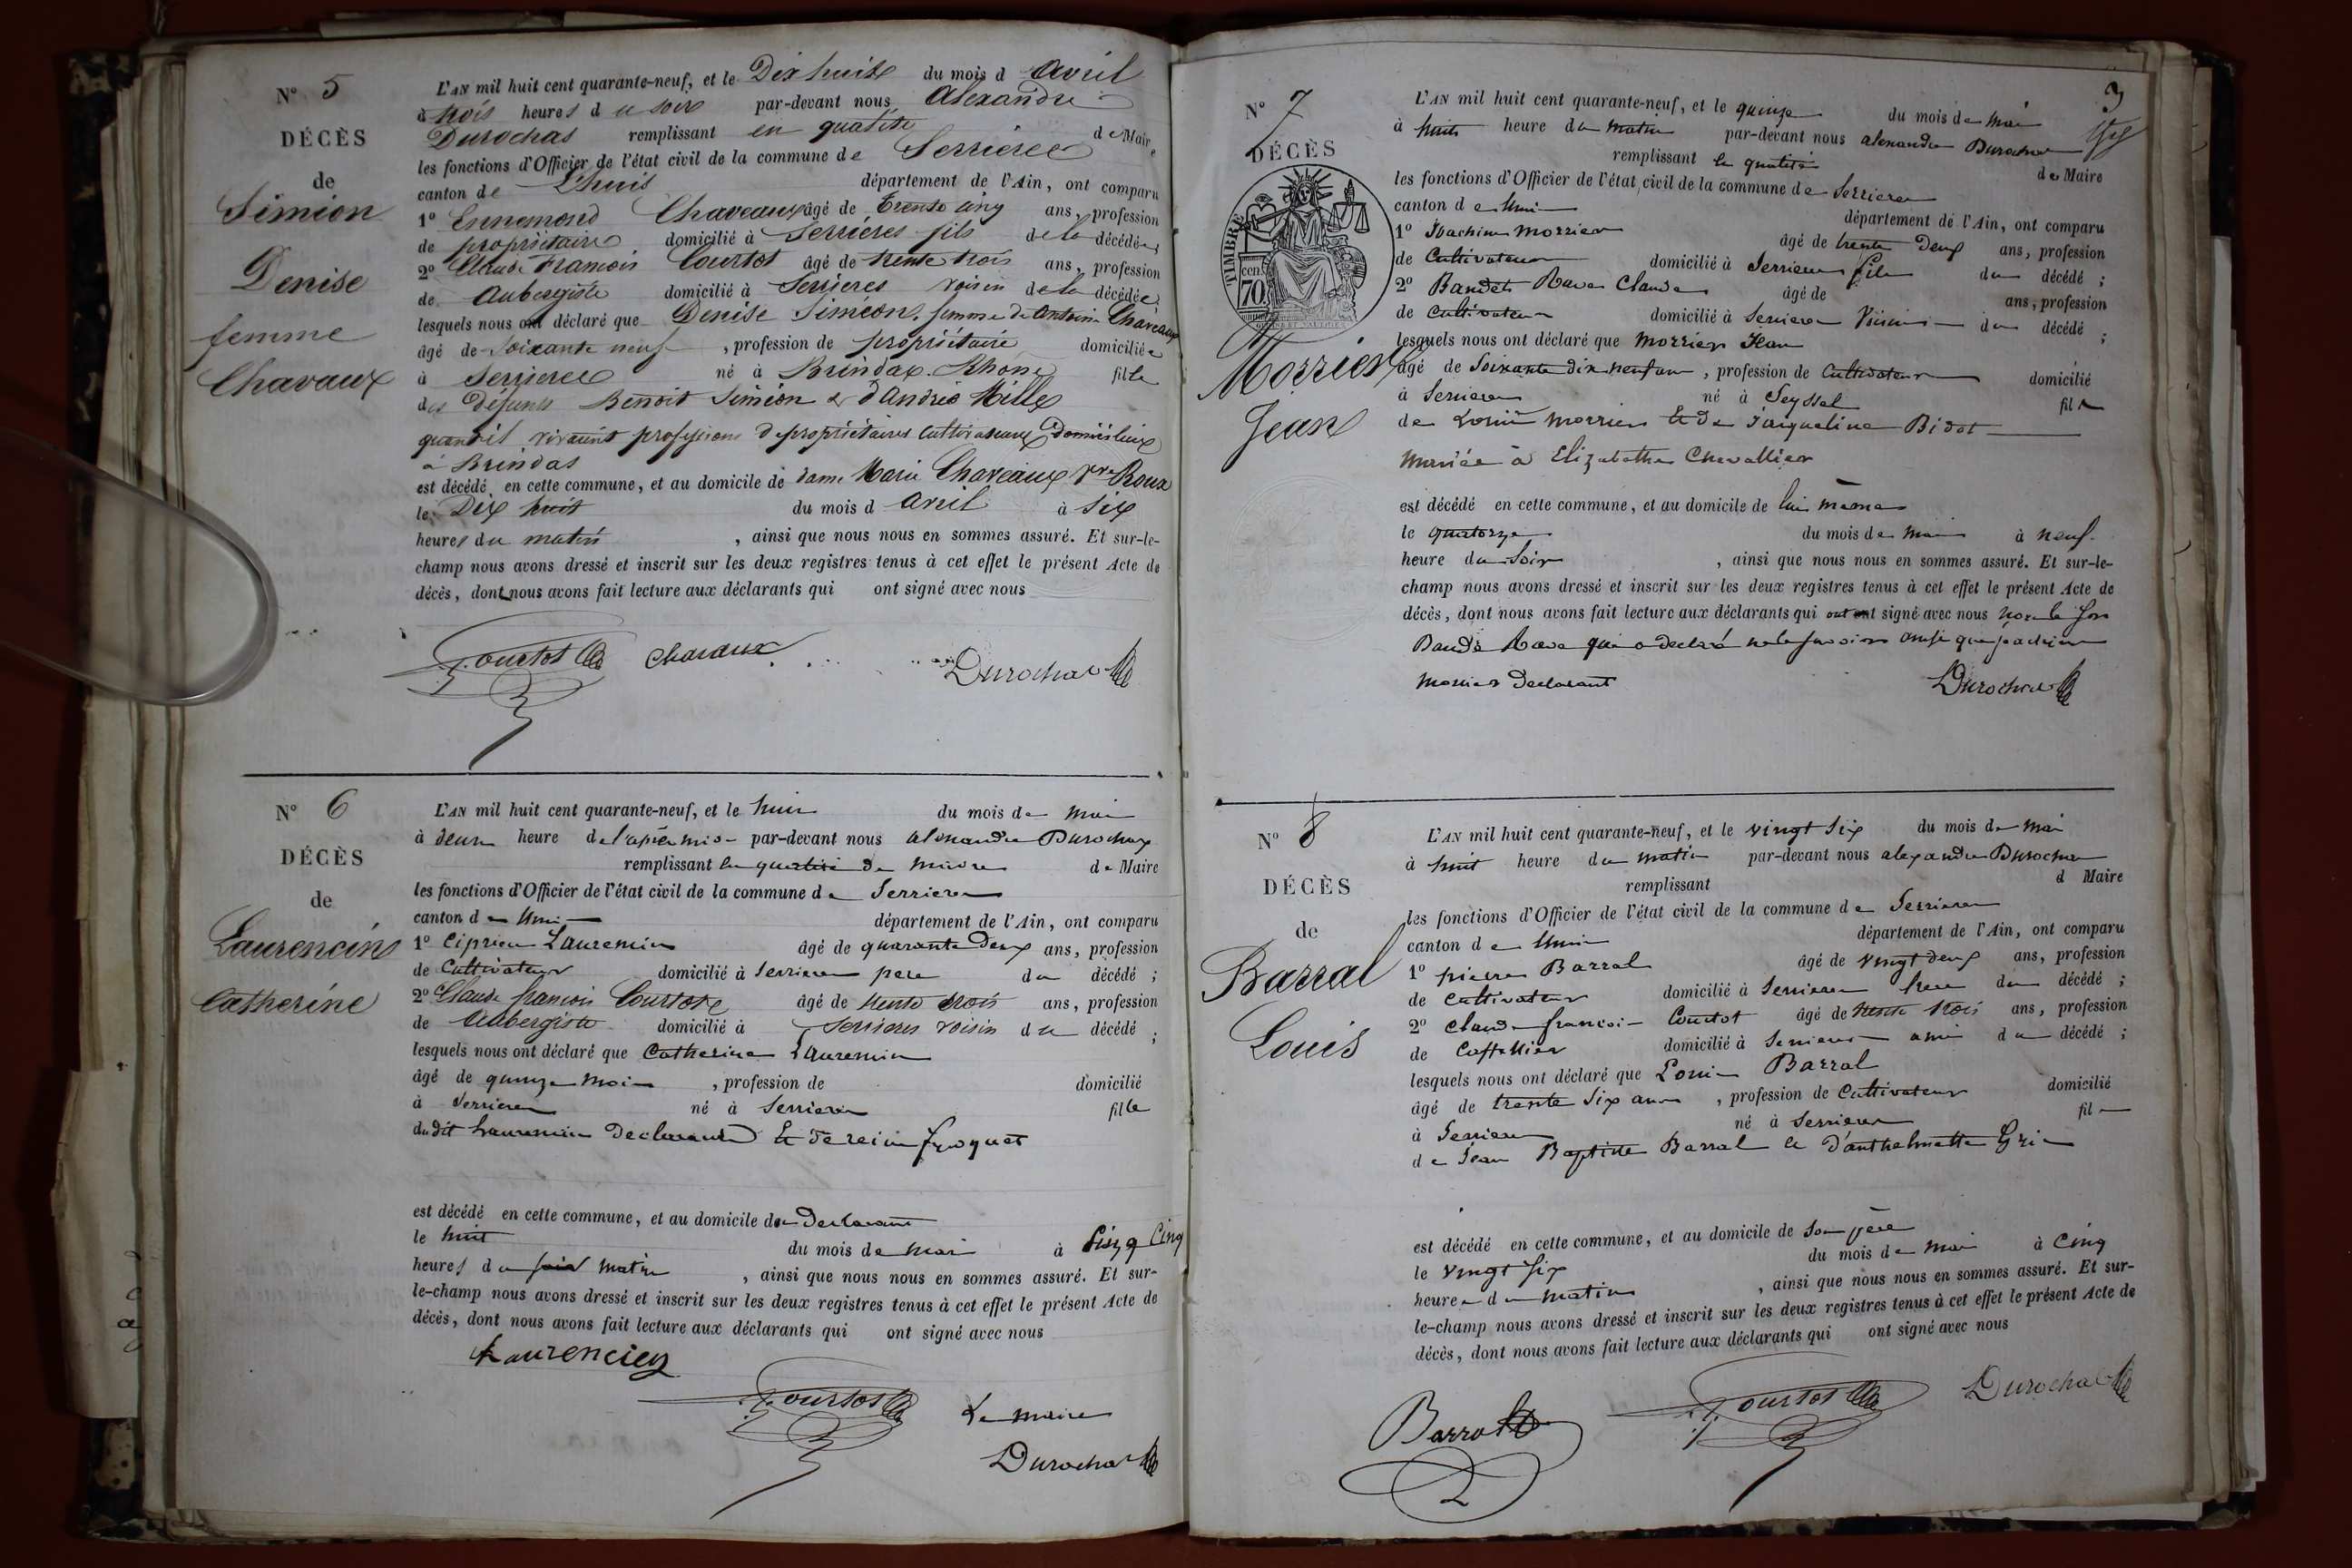 N° 5
DÉCÈS
de
Siméon
Denise
femme
Chavaux
L'AN mil huit cent quarante-neuf, et le Dix huit du mois d avril
à trois heures d u soir par-devant nous Alexandre
Durochas remplissant en qualité de Maire
les fonctions d'Officier de l'état civil de la commune de Serrieres
canton de Lhuis département de l'Ain, ont comparu
1° Ennemond Chaveaux âgé de trente cinq ans, profession
de propriétaire domicilié à Serrieres fils de la décédée,
2° Claude François Courtot âgé de trente trois ans, profession
de Aubergiste domicilié à Serrieres voisin de la décédée
lesquels nous ont déclaré que Denise Siméon, femme de Antoine Chaveaux
âgé de soixante neuf , profession de propriétaire domiciliée
à Serrieres né à Brindas Rhône fille
des défunts Benoit Siméon & d'Andréa Mille
quand il vivaient professions de propriétaires cultivateurs Domiciliés
à Brindas
est décédé en cette commune, et au domicile de dame Marie Chaveaux Vve Roux
le Dix huit du mois d avril à six
heures du matin , ainsi que nous nous en sommes assuré. Et sur-le-
champ nous avons dressé et inscrit sur les deux registres tenus à cet effet le présent Acte de
décès, dont nous avons fait lecture aux déclarants qui ont signé avec nous
Courtot Chavaux Durochat
N° 6
DÉCÈS
de
Laurencin
Catherine
L'AN mil huit cent quarante-neuf, et le huit du mois de mai
à deux heure de l'après midi par-devant nous alexandre Durochas
remplissant la qualité de maire de Maire
les fonctions d'Officier de l'état civil de la commune de Serrieres
canton de Lhuis département de l'Ain, ont comparu
1° Ciprien Laurencin âgé de quarante deux ans, profession
de Cultivateur domicilié à Serrieres pere du décédé ;
2° Claude françois Courtot âgé de trente trois ans, profession
de Aubergiste domicilié à Serrieres voisin du décédé ;
lesquels nous ont déclaré que Catherine Laurencin
âgé de quinze mois , profession de domicilié
à Serrieres né à Serrieres fille
dudit Laurencin Declarant Et de reine froquet
est décédé en cette commune, et au domicile du Declarant
le huit du mois de mai à Cinq
heures du soir matin , ainsi que nous nous en sommes assuré. Et sur-
le-champ nous avons dressé et inscrit sur les deux registres tenus à cet effet le présent Acte de
décès, dont nous avons fait lecture aux déclarants qui ont signé avec nous
Laurencien
Courtot Le maire
Durochat
3
N° 7
DÉCÈS
TIMBRE
cent.
70
Morrier
Jean
L'AN mil huit cent quarante-neuf, et le quinze du mois de mai
à huit heure du matin par-devant nous alexandre Durochas
remplissant la qualité de Maire
les fonctions d'Officier de l'état civil de la commune de Serrieres
canton de Lhuis département de l'Ain, ont comparu
1° Joachim Morrier âgé de trente Deux ans, profession
de Cultivateur domicilié à Serrieres fils du décédé ;
2° Baudet Rave Claude âgé de ans, profession
de cultivateur domicilié à Serrieres Voisin du décédé ;
lesquels nous ont déclaré que Morrier Jean
âgé de Soixante dix neuf ans , profession de Cultivateur domicilié
à Serrieres né à Seyssel fils
de Louis Morrier Et de Jacqueline Bidot
mariée à Elizabethe Chevallier
est décédé en cette commune, et au domicile de lui même
le quatorze du mois de mai à neuf
heure du Soir , ainsi que nous nous en sommes assuré. Et sur-le-
champ nous avons dressé et inscrit sur les deux registres tenus à cet effet le présent Acte de
décès, dont nous avons fait lecture aux déclarants qui ont signé avec nous
Rave qui a declaré ne le savoir ainsi que joachim
morrier Declarant Durochat
N° 8
DÉCÈS
de
Barral
Louis
L'AN mil huit cent quarante-neuf, et le vingt six du mois de mai
à huit heure du matin par-devant nous alexandre Durochas
remplissant d Maire
les fonctions d'Officier de l'état civil de la commune de Serrieres
canton de Lhuis département de l'Ain, ont comparu
1° pierre Barral âgé de vingt deux ans, profession
de cultivateur domicilié à Serrieres frere du décédé ;
2° Claude françois Courtot âgé de trente trois ans, profession
de domicilié à Serrieres ami du décédé ;
lesquels nous ont déclaré que Louis Barral
âgé de trente six ans , profession de Cultivateur domicilié
à Serrieres né à Serrieres fils
de Jean Baptiste Barral & d'anthelmette Gri
est décédé en cette commune, et au domicile de son père
le vingt six du mois de mai à cinq
heure du matin , ainsi que nous nous en sommes assuré. Et sur-
le-champ nous avons dressé et inscrit sur les deux registres tenus à cet effet le présent Acte de
décès, dont nous avons fait lecture aux déclarants qui ont signé avec nous
Barral Courtot Durochat